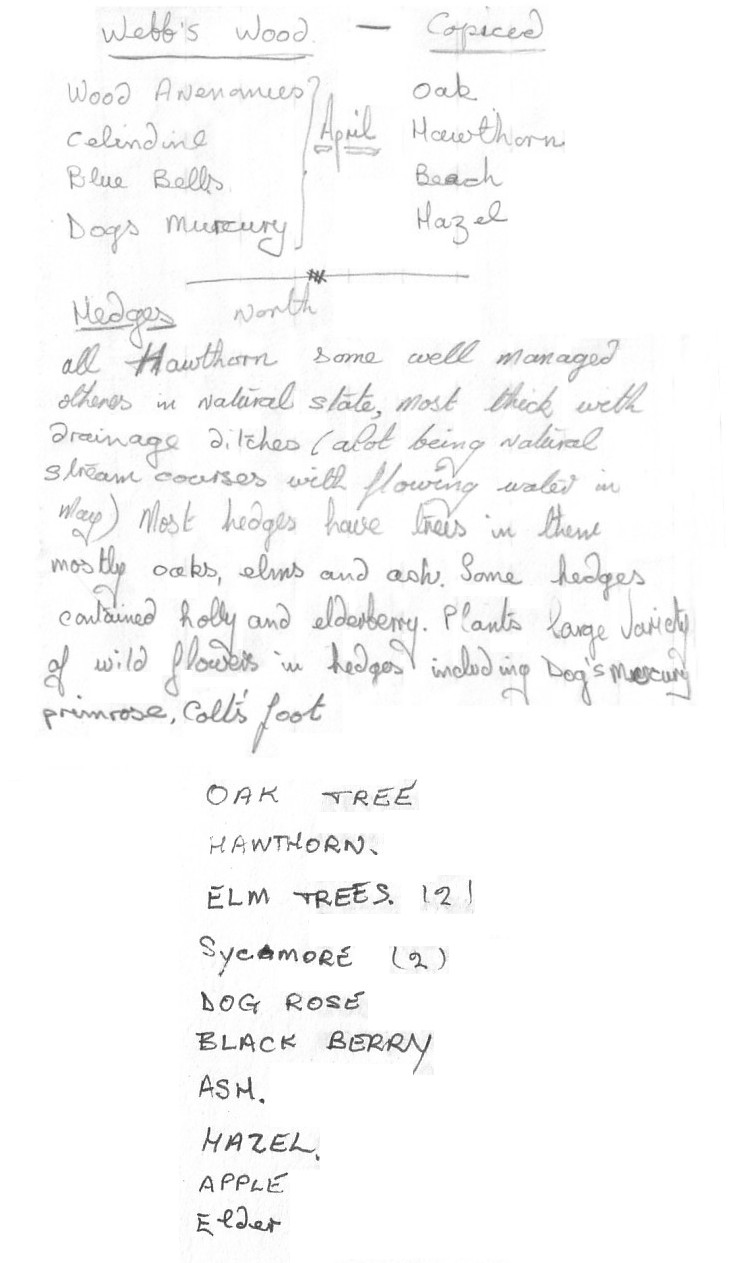 Webb's Wood. — Copiced
Wood Anenomies
Celindine
Blue Bells
Dogs Murcury
April
Oak
Hawthorn
Beach
Hazel
Hedges North
all Hawthorn some well managed
otheres in natural state, most thick with
drainage ditches (alot being natural
stream courses with flowing water in
May) Most hedges have trees in them
mostly oaks, elms and ash. Some hedges
contained holly and elderberry. Plants large variety
of wild flowers in hedges including Dog's Mercury
primrose, Colt's foot
OAK TREE
HAWTHORN.
ELM TREES. (2)
SycAMORE (2)
DOG ROSE
BLACK BERRY
ASH.
HAZEL.
APPLE
Elder